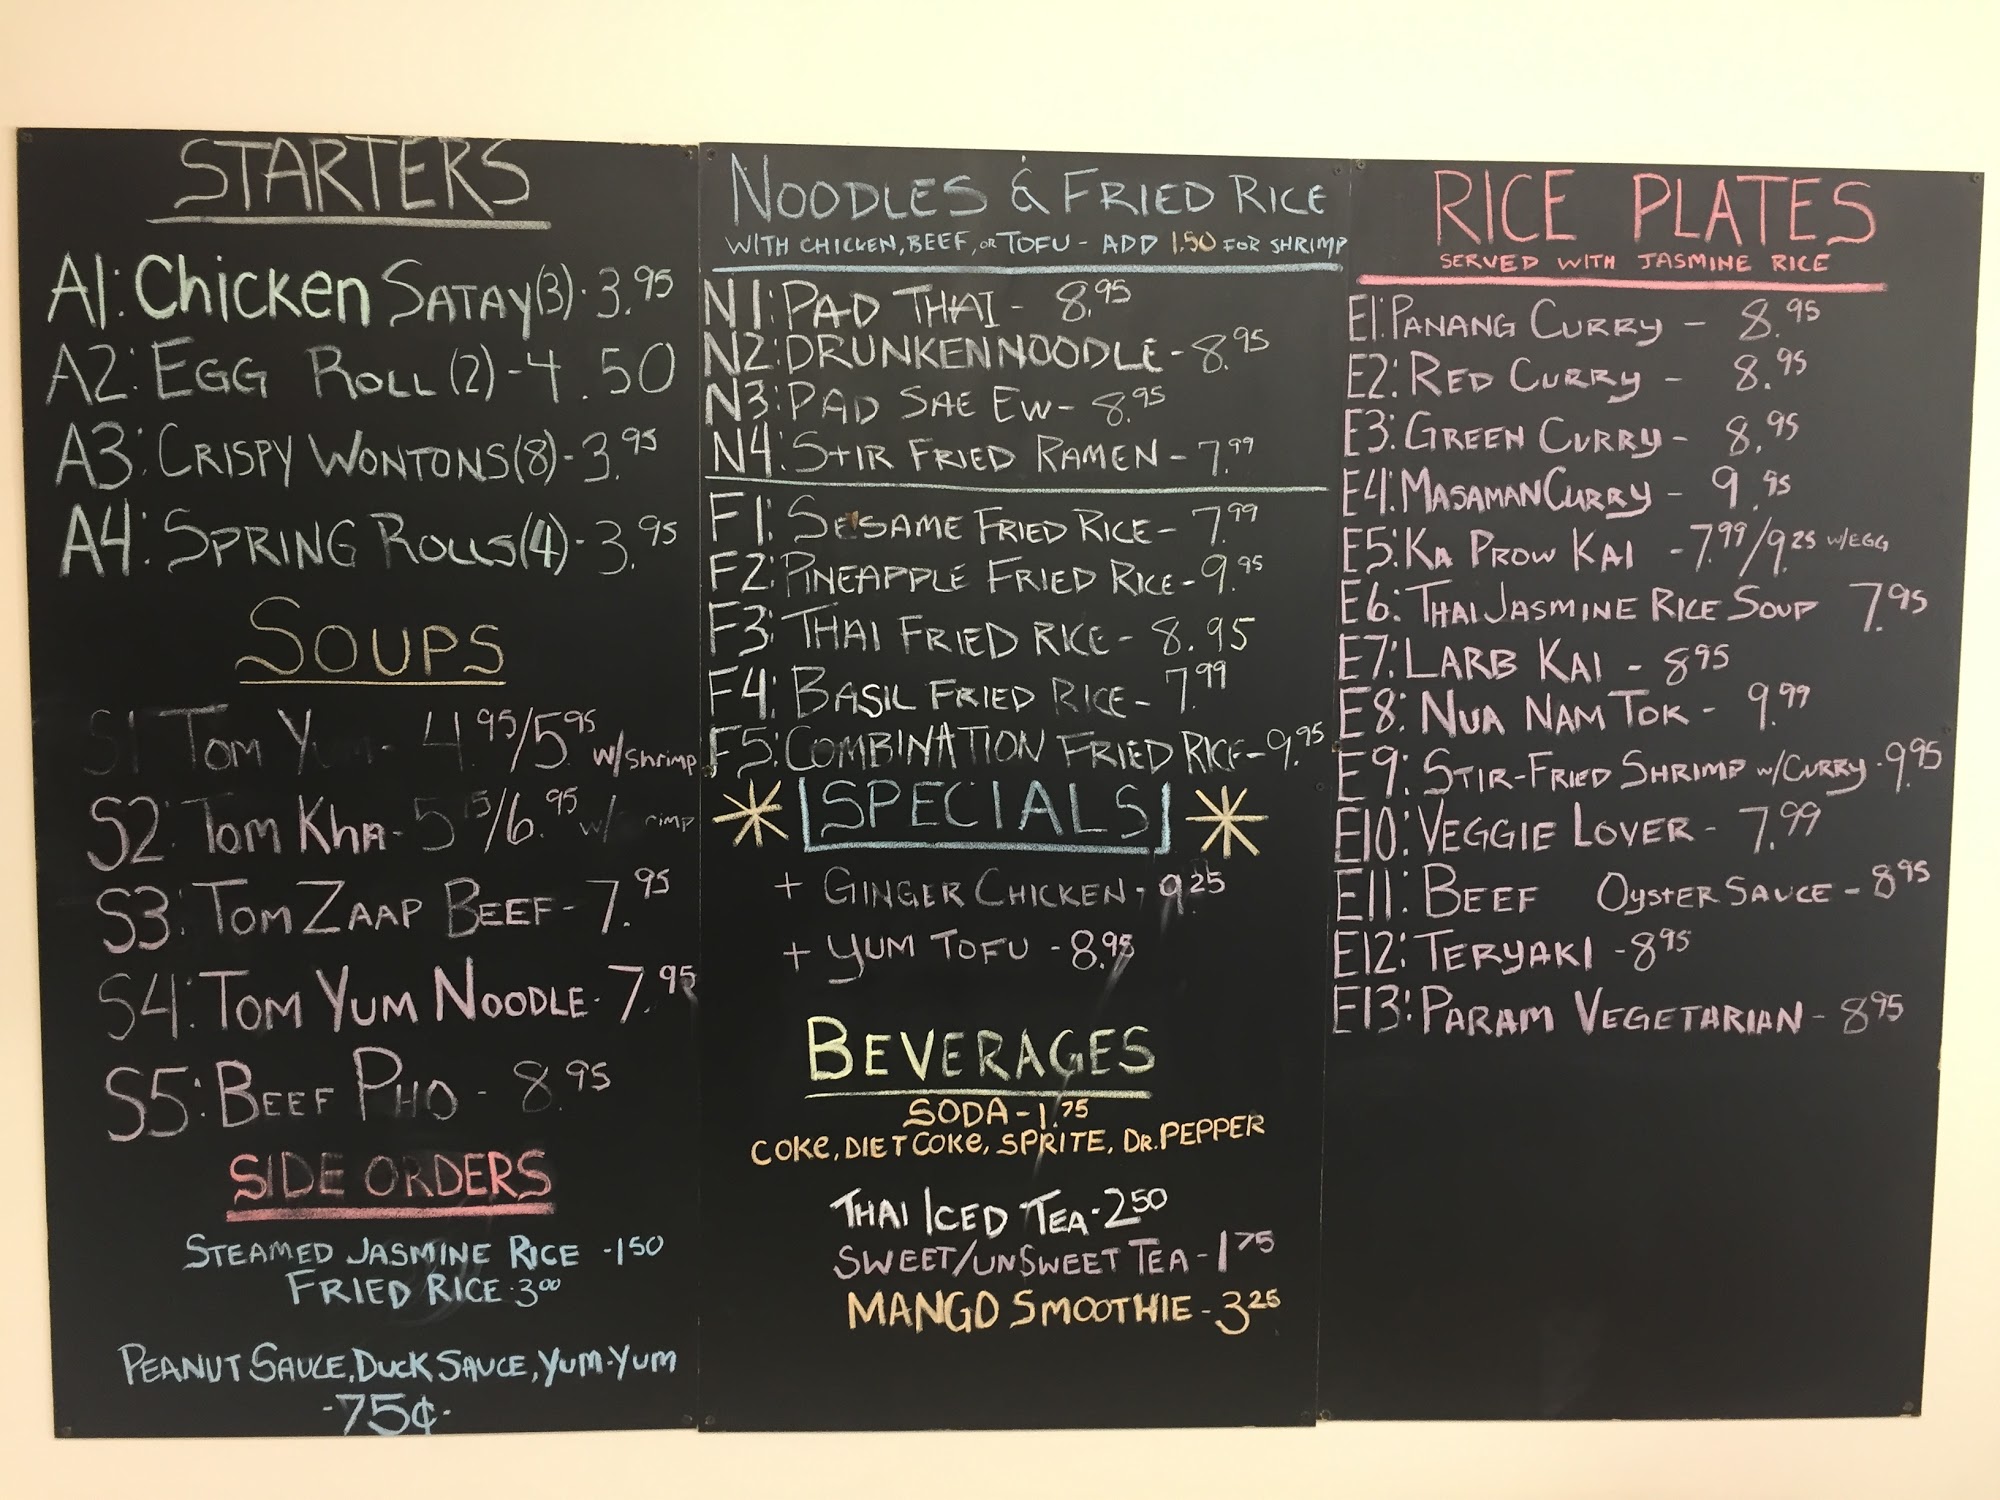 STARTERS
A1: Chicken SATAY (3) - 3.95
A2: EGG ROLL (2) - 4.50
A3: CRISPY WONTONS (8) - 3.95
A4: SPRING ROLLS (4) - 3.95
SOUPS
S1 TOM YUM - 4.95/5.95 w/shrimp
S2: TOM KHA - /6.95 w/
S3: TOM ZAAP BEEF - 7.95
S4: TOM YUM NOODLE - 7.95
S5: BEEF PHO - 8.95
SIDE ORDERS
STEAMED JASMINE RICE - 1 50
FRIED RICE - 3 00
PEANUT SAUCE, DUCK SAUCE, YUM-YUM
- 75¢ -
NOODLES & FRIED RICE
WITH CHICKEN, BEEF, OR TOFU - ADD 1.50 FOR SHRIMP
N1: PAD THAI - 8.95
N2: DRUNKEN NOODLE - 8.95
N3: PAD SAE EW - 8.95
N4: STIR FRIED RAMEN - 7.99
F1: SESAME FRIED RICE - 7.99
F2: PINEAPPLE FRIED RICE - 9.95
F3: THAI FRIED RICE - 8.95
F4: BASIL FRIED RICE - 7.99
F5: COMBINATION FRIED RICE - 9.95
* [SPECIALS] *
+ GINGER CHICKEN - 9.25
+ YUM TOFU - 8.95
BEVERAGES
SODA - 1.75
COKE, DIET COKE, SPRITE, DR. PEPPER
THAI ICED TEA - 2 50
SWEET/UNSWEET TEA - 1 75
MANGO SMOOTHIE - 3 25
RICE PLATES
SERVED WITH JASMINE RICE
E1: PANANG CURRY - 8.95
E2: RED CURRY - 8.95
E3: GREEN CURRY - 8.95
E4: MASAMAN CURRY - 9.95
E5: KA PROW KAI - 7.99/9.25 W/EGG
E6: THAI JASMINE RICE SOUP 7.95
E7: LARB KAI - 8 95
E8: NUA NAM TOK - 9.99
E9: STIR-FRIED SHRIMP W/CURRY - 9.95
E10: VEGGIE LOVER - 7.99
E11: BEEF OYSTER SAUCE - 8 95
E12: TERYAKI - 8 95
E13: PARAM VEGETARIAN - 8 95